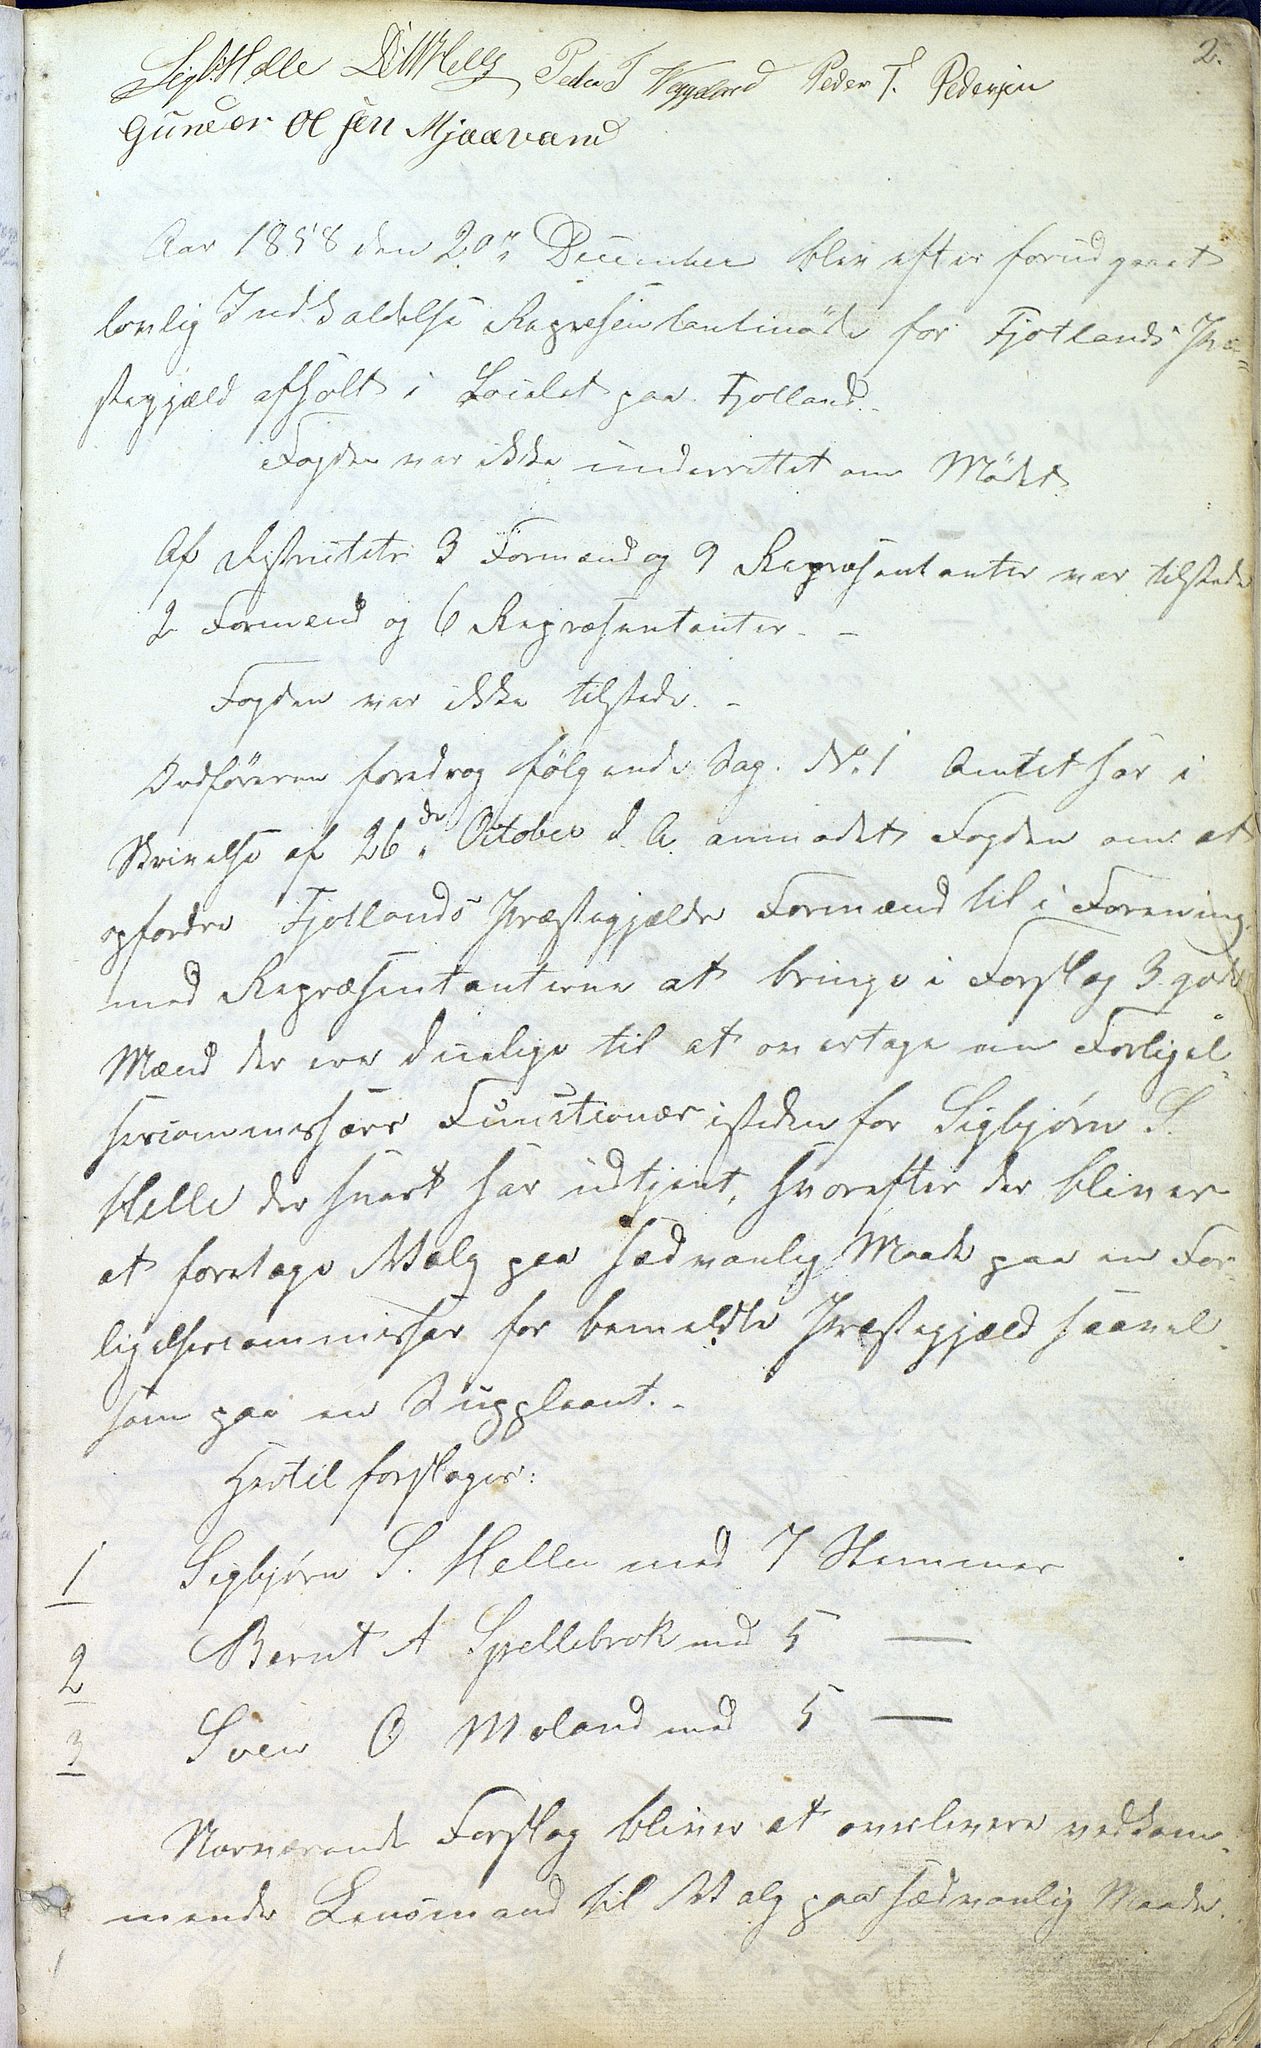 2.
Sigb. Helle Peder T Peder T. Pedersen
Gunder Olsen Mjaavand
Aar 1858 den 20de December blev efter forudgaaet
lovlig Indkaldelse Repræsentantmöde for Fjotlands Præ=
stegjæld afholt i Localet paa Fjotland.
Fogden var ikke underrettet om Mödet.
Af Distriktets 3 Formænd og 9 Repræsentanter var tilstede
2 Formænd og 6 Repræsentanter. –
Fogden var ikke tilstede. –
Ordföreren foredrog fölgende Sag. No. 1 Amtet har i
Skrivelse af 26de October d. A. anmodet Fogden om at
opfordre Fjotlands Præstegjælds Formænd til i Forening
med Repræsentanterne at bringe i Forslag 3 gode
Mænd der ere duelige til at overtage en Forligel-
sescommissærs Functioner isteden for Sigbjørn S.
Helle der snart har udtjent, hvorefter der bliver
at foretage Valg paa sædvanlig Maade paa en For-
ligelsescommissær for bemeldte Præstegjæld saavel
som paa en Suppleant. –
Hertil forslages:
1 Sigbjørn S. Helle med 7 Stemmer
2 Bernt A Spellebrok med 5 —
3 Sven O Moland med 5 —
Nærværende Forslag bliver at overlevere vedkom-
mende Lensmand til Valg paa sædvanlig Maade.